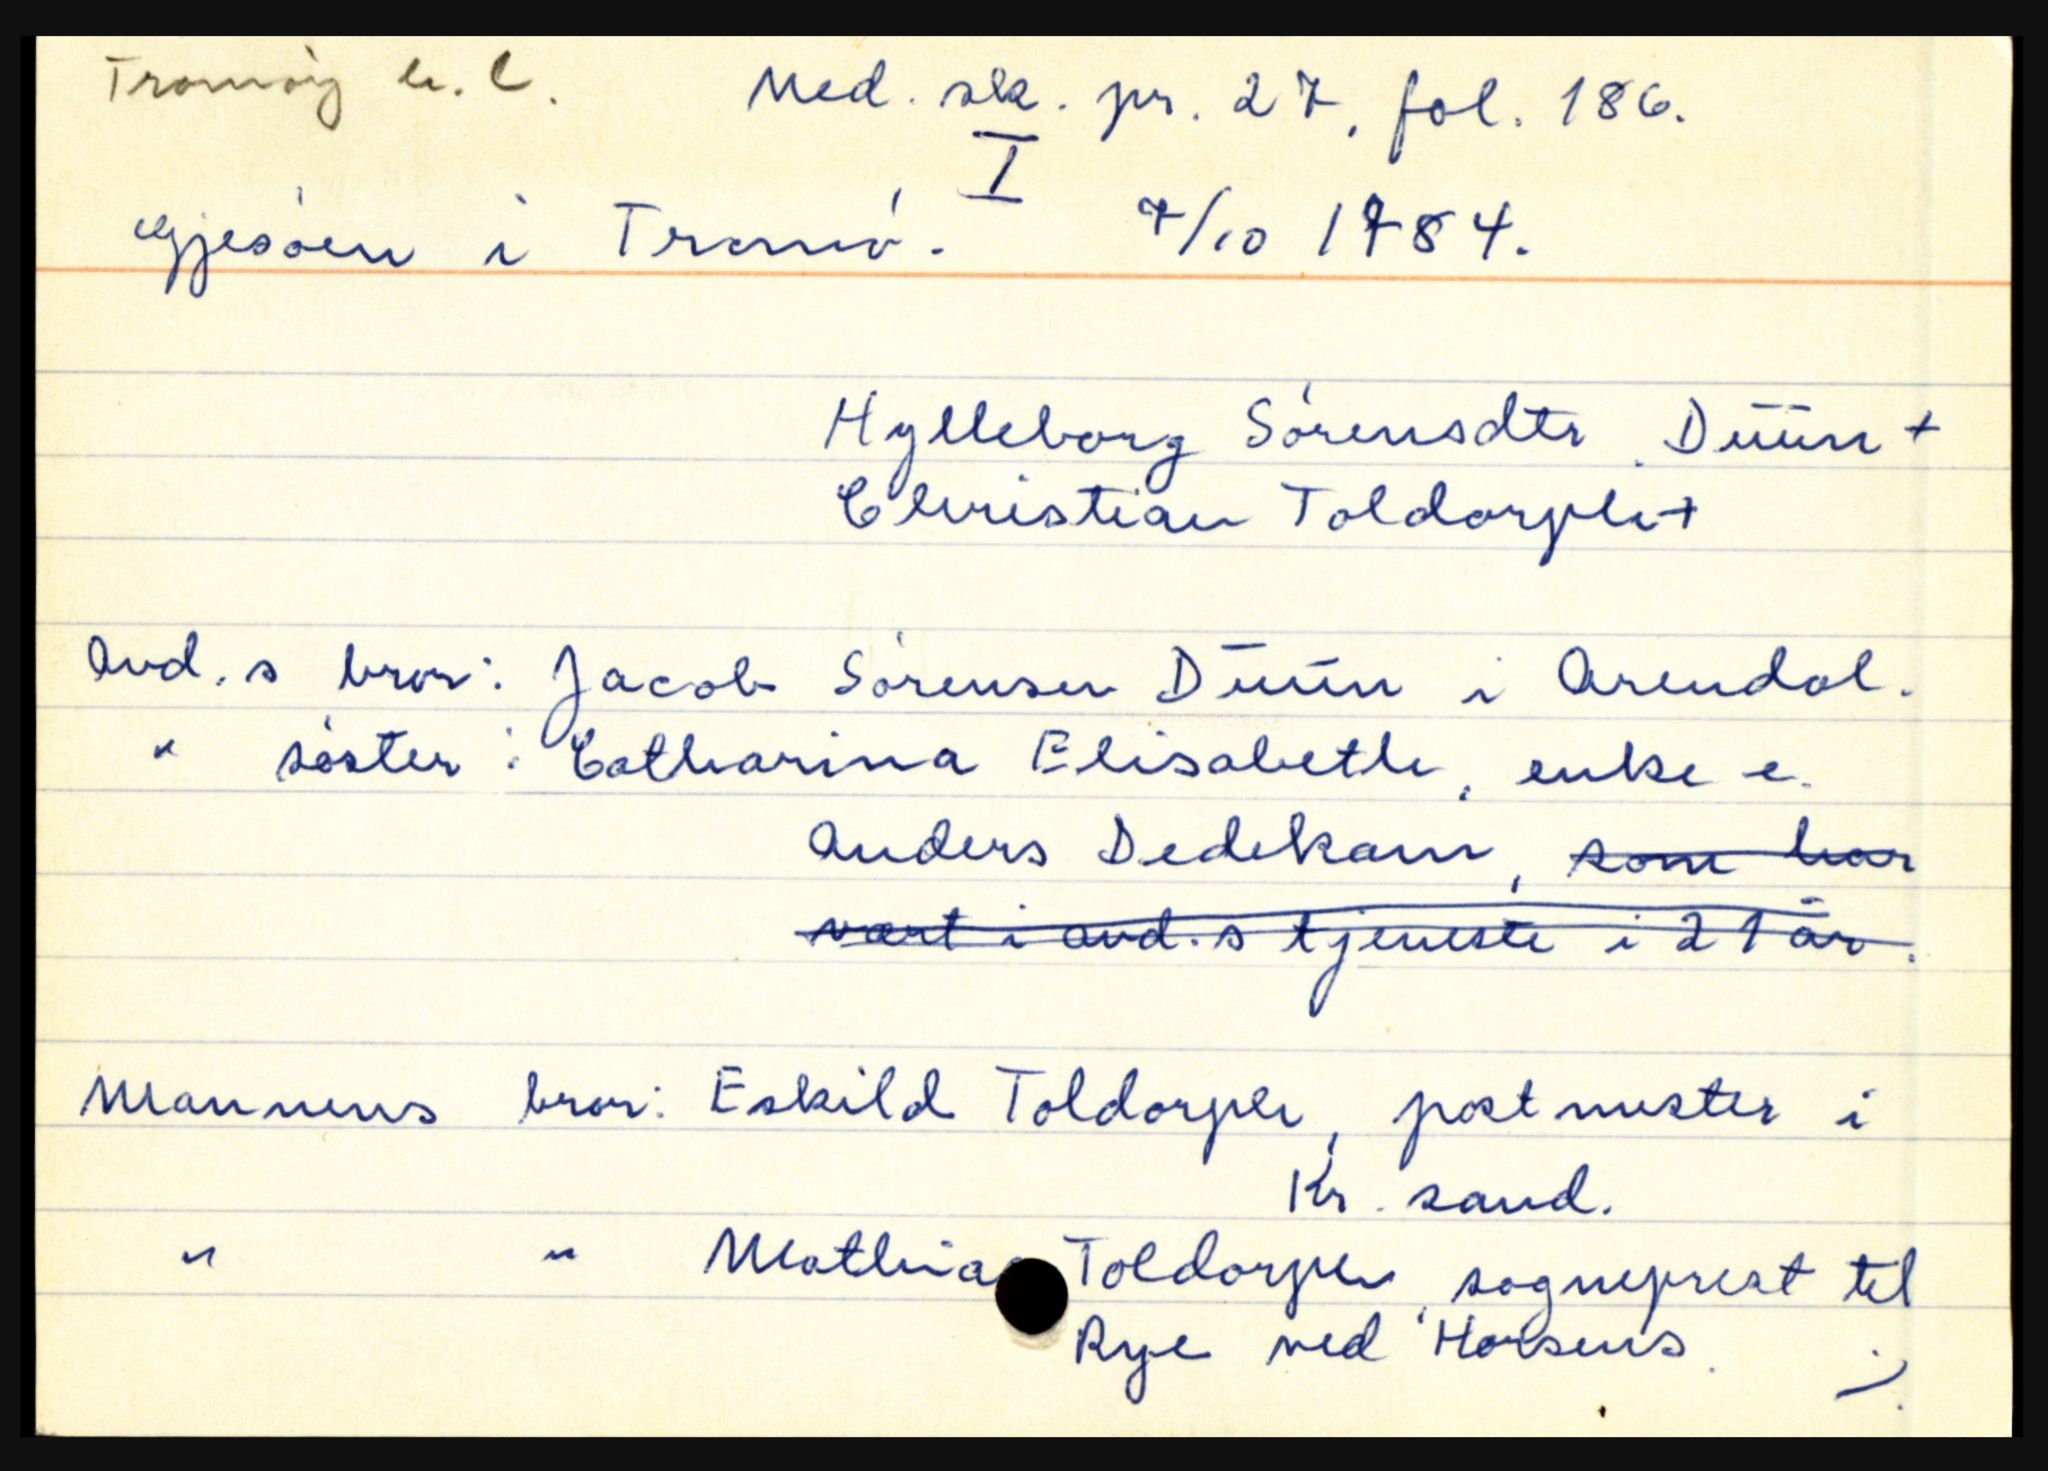 Tromøy h. l.
Ned. sk. pr. 27, fol. 186.
I
Gjesøen i Tromø. 7/10 1784.
Hylleborg Sørensdtr Duün +
Christian Toldorph +
Avd.s bror: Jacob Sørensen Duün i Arendal.
" søster: Catharina Elisabeth, enke e.
Anders Dedekam, som har
vært i avd.s tjeneste i 21 år.
Mannens bror: Eskild Toldorph, postmester i
Kr.sand.
" " Mathias Toldorph, sogneprest til
Rye ved Horsens.